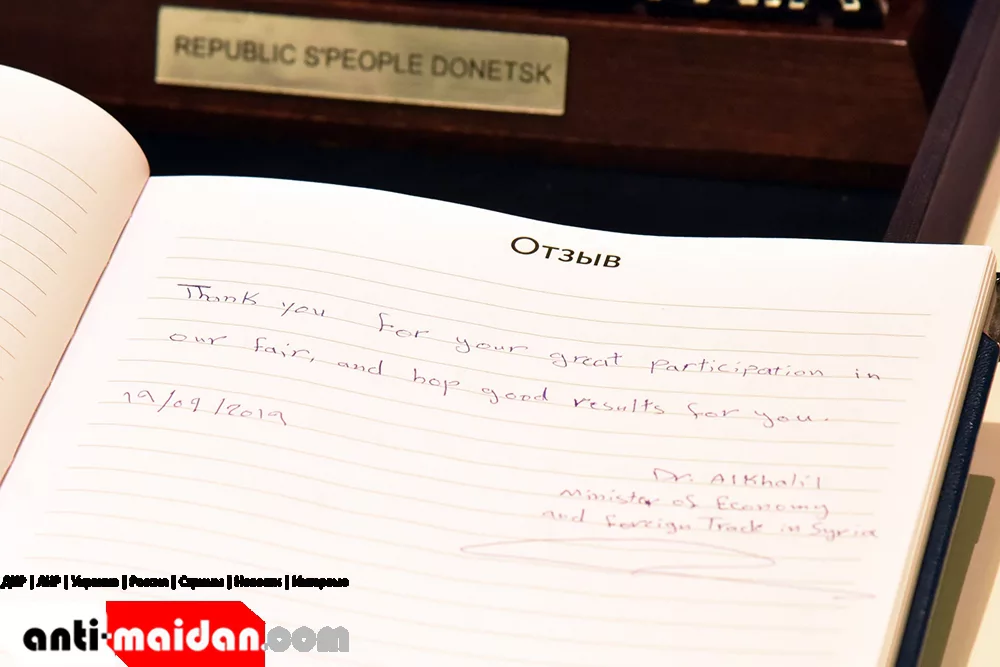 REPUBLIC S'PEOPLE DONETSK
Отзыв
Thank you for your great participation in
our fair, and hop good results for you.
19/09/2019
Dr. AlKhalil
Minister of Economy
and Foreign Track in Syria
ДНР | ЛНР | Украина | Россия | Страны | Новости | Интервью
anti-maidan.com